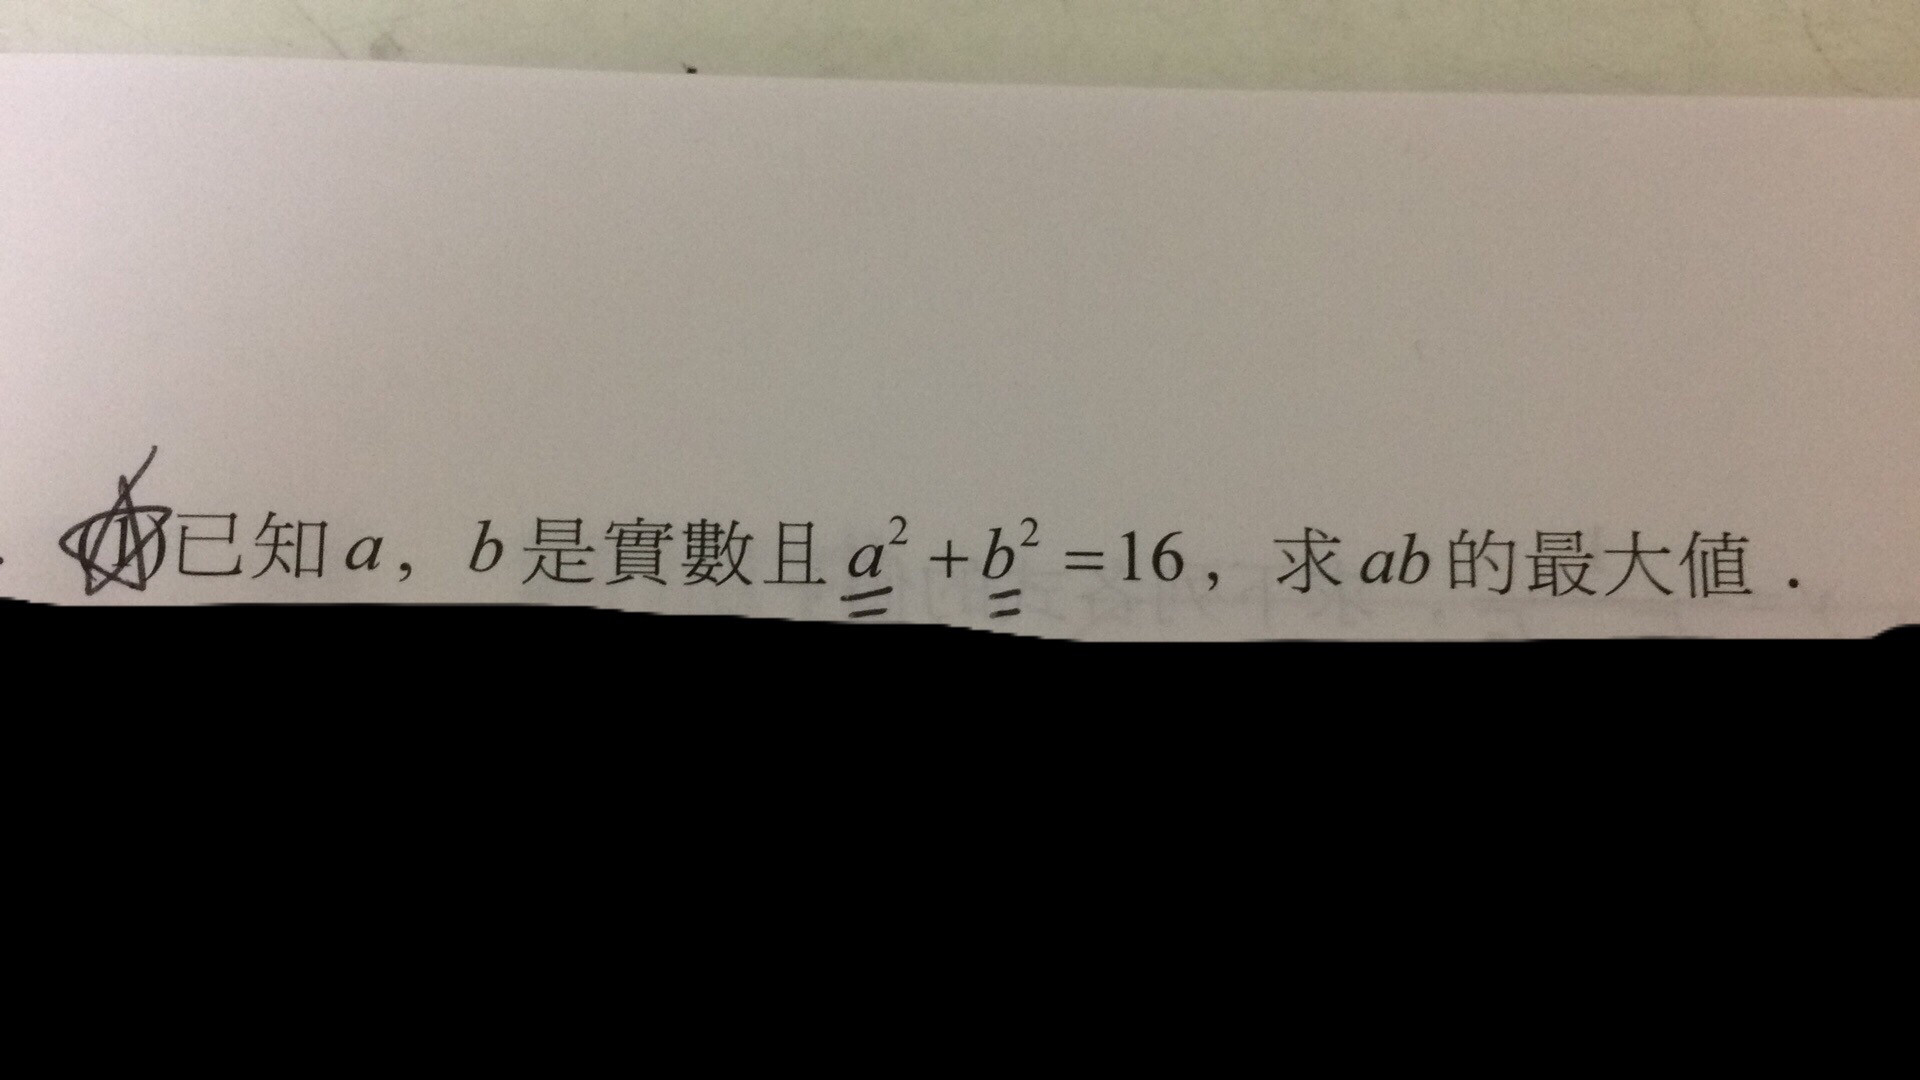 (1)已知a，b是實數且a²+b²=16，求ab的最大值．